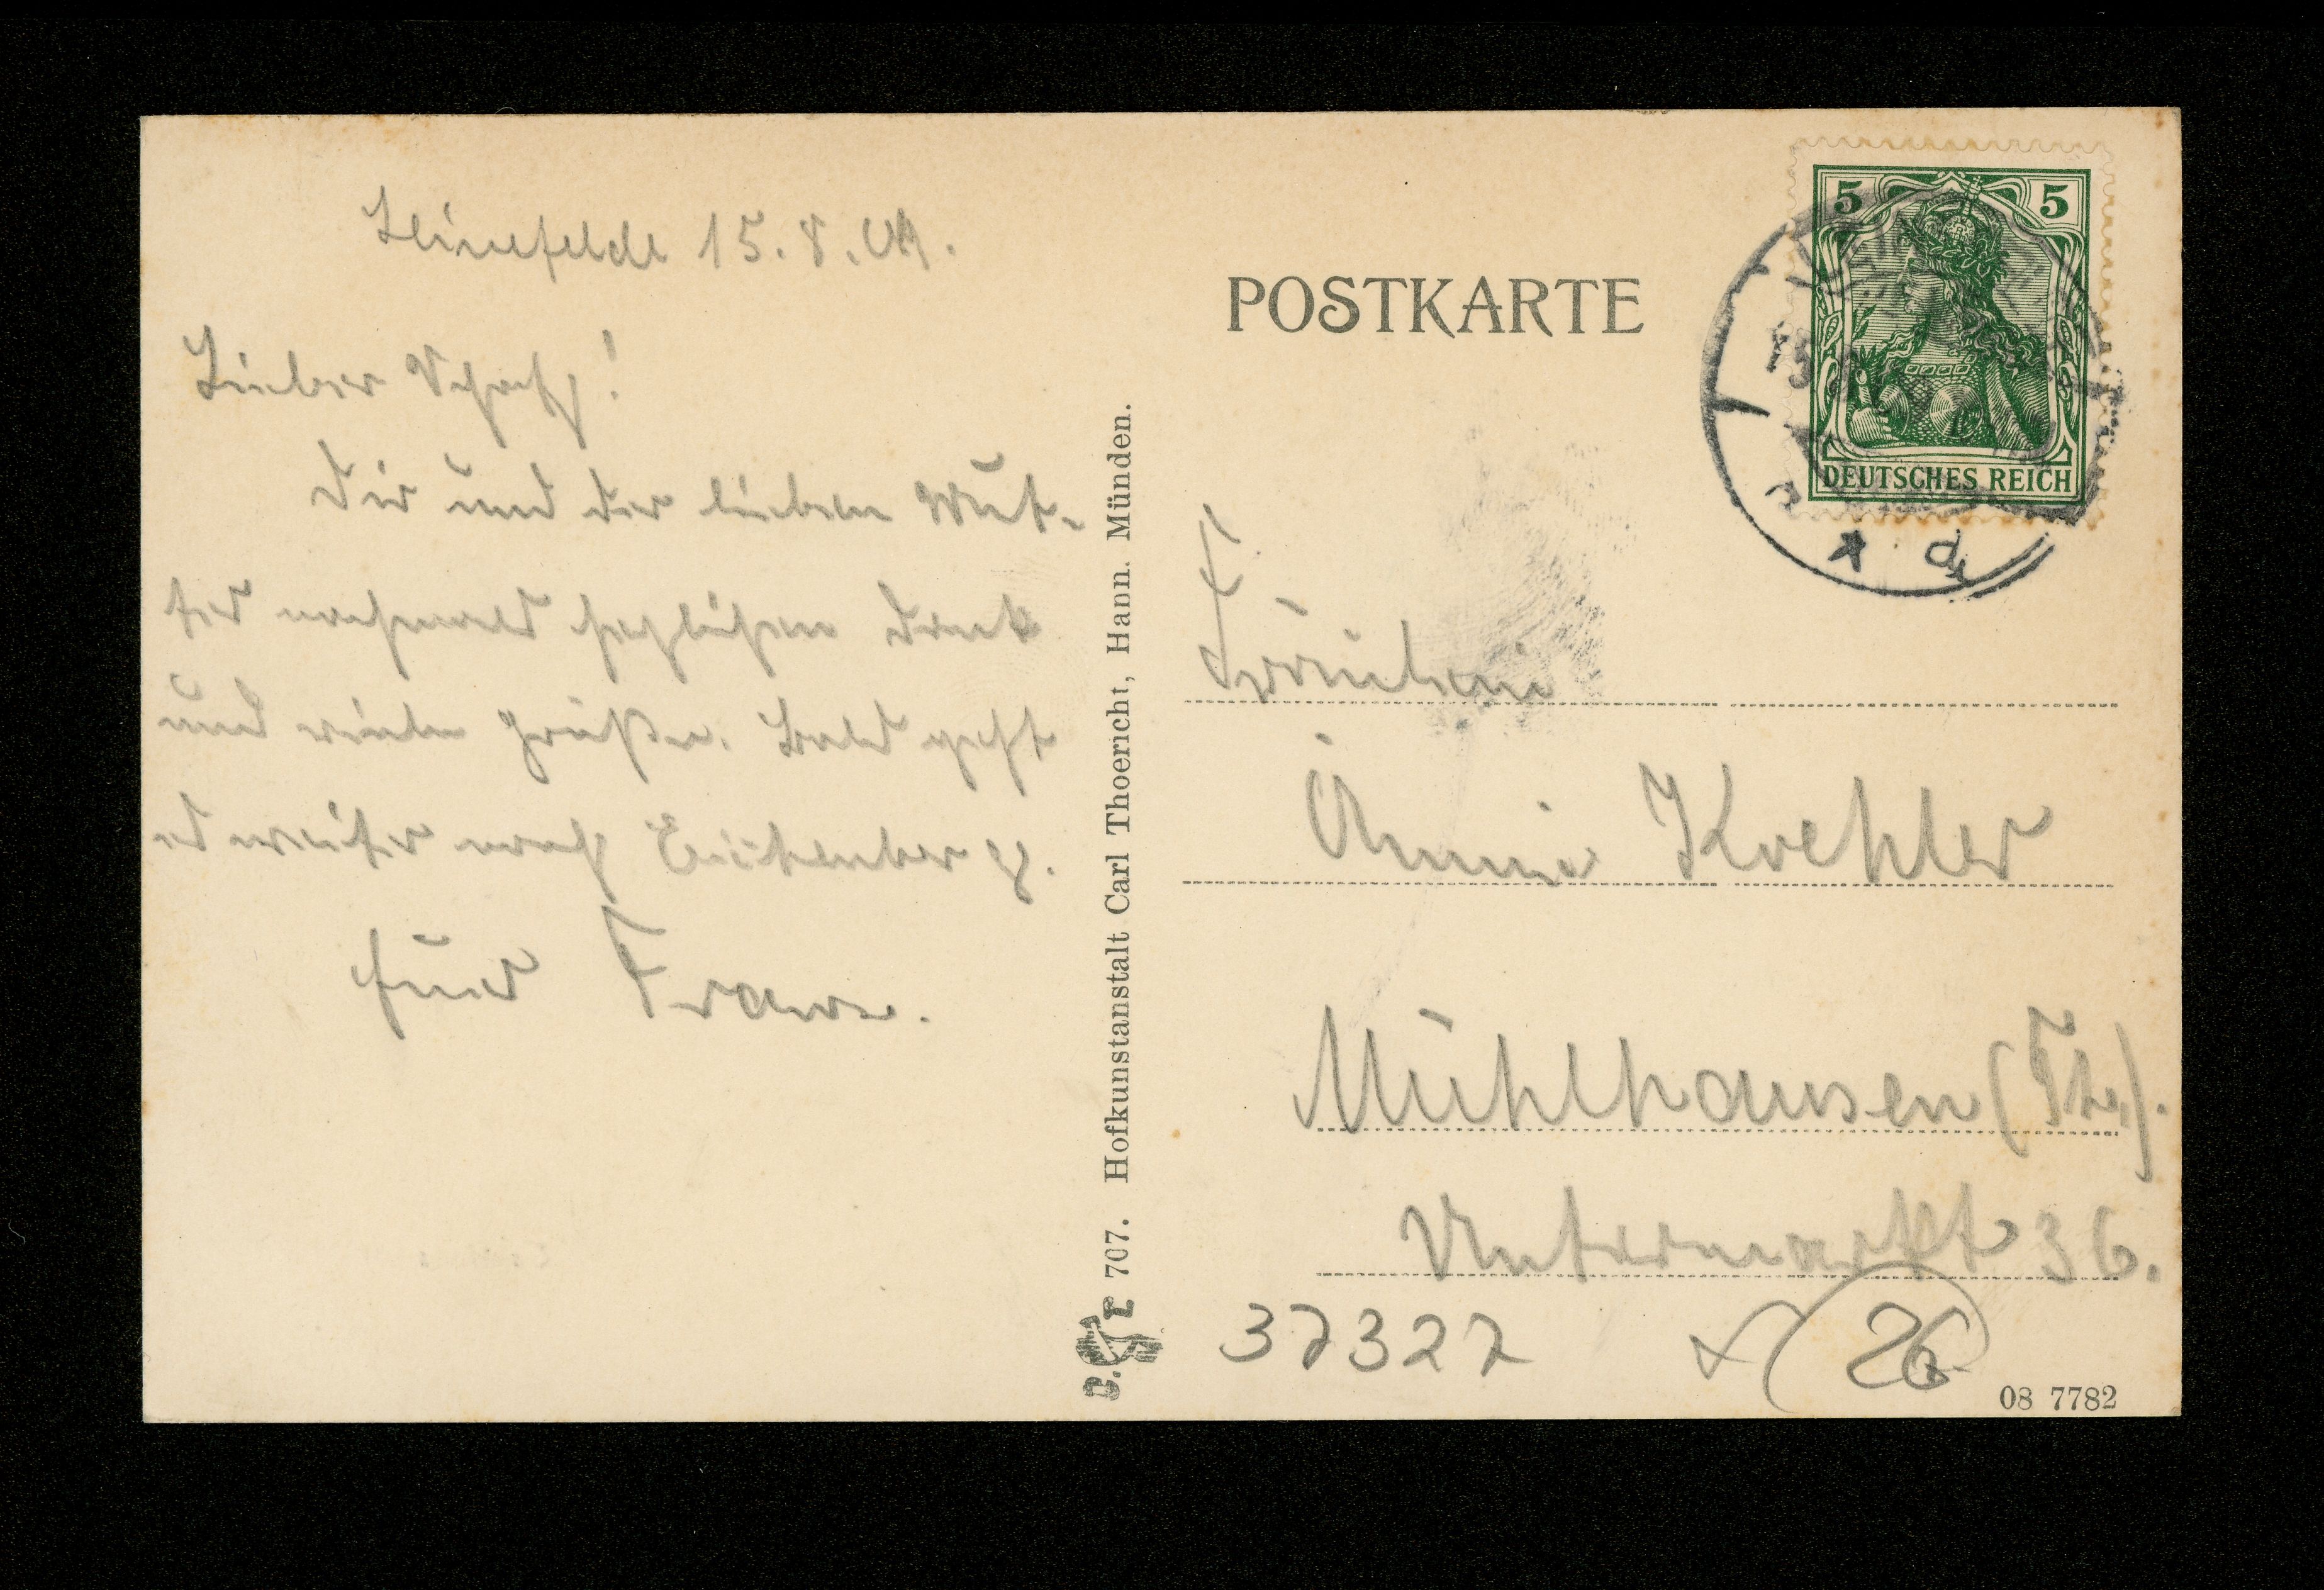 Leinefelde 15. 8. 09.
Lieber Schatz!
Dir und der lieben Mut-
ter nochmals herzlichen Dank
und viele Grüße. Bald geht
es weiter nach Eichenberg.
Franz.
Hofkunstanstalt Carl Thoericht, Hann. Münden.
707.
POSTKARTE
5 5
DEUTSCHES REICH
Fräulein
Änni Koehler
Mühlhausen (Th.).
Untermarkt 36.
37327
26
08 7782